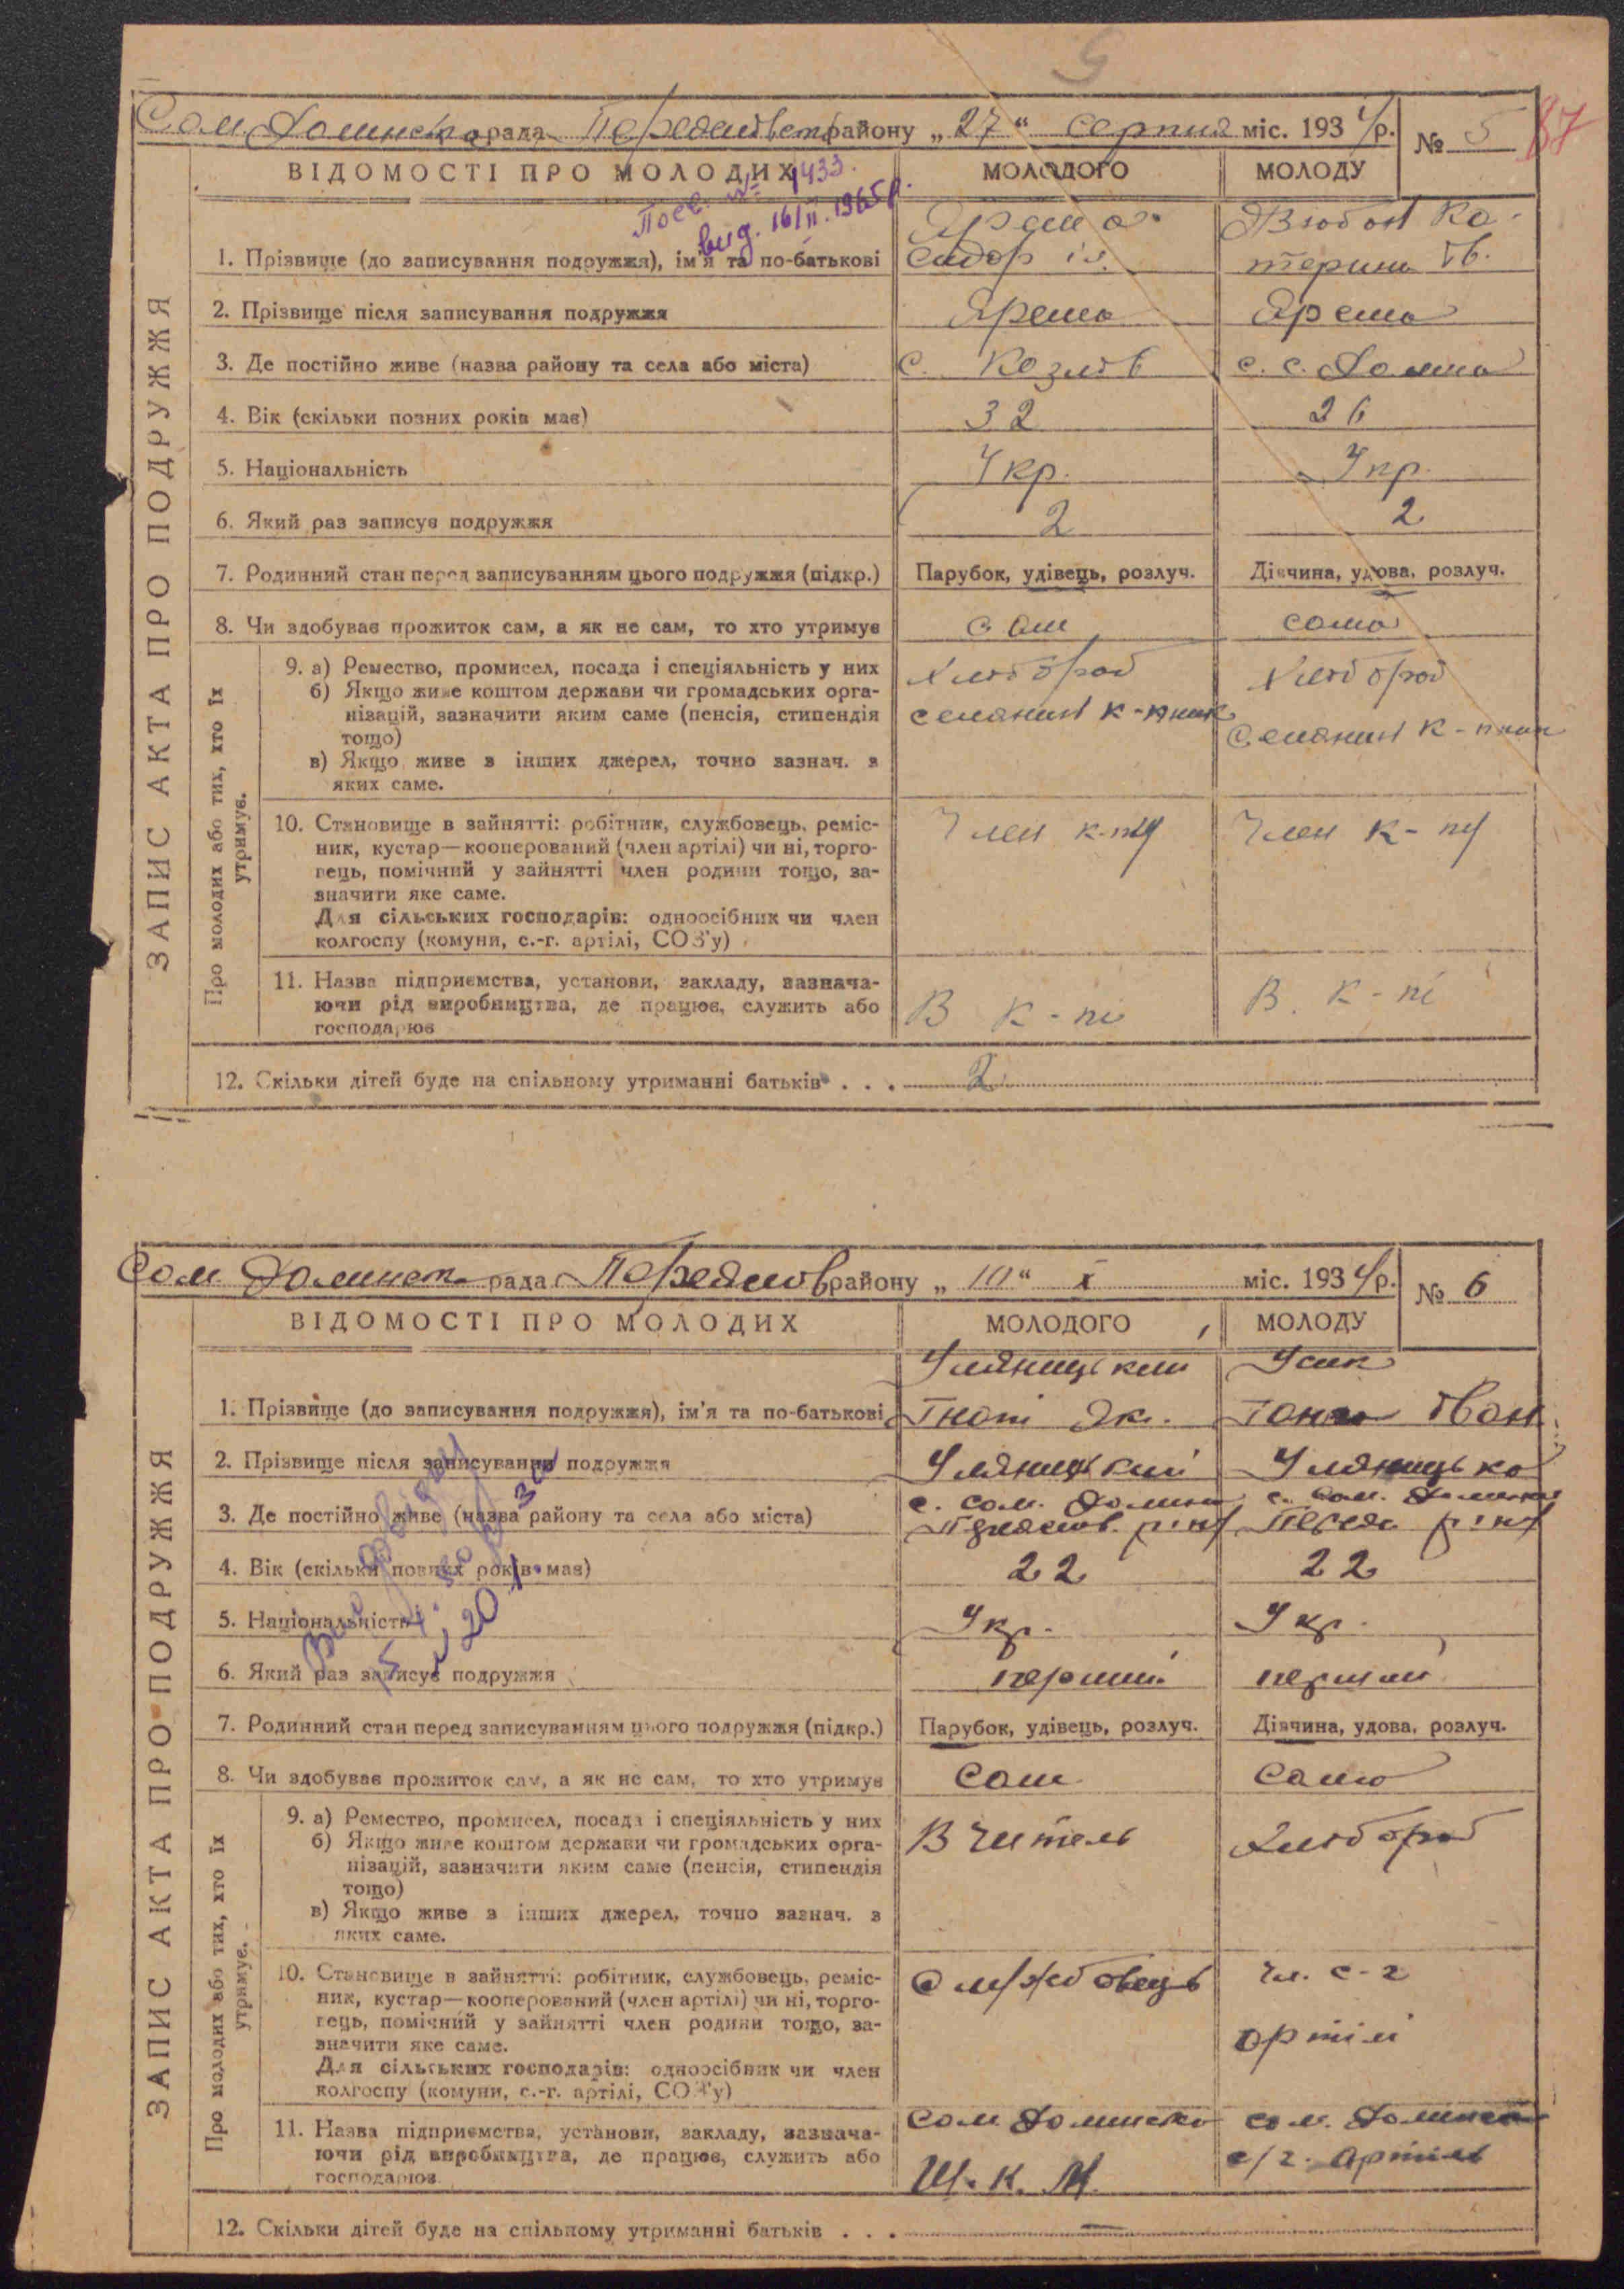 87
Сом. Долинська рада Переяславськ району „27“ серпня міс. 1934 р. № 5
ВІДОМОСТІ ПРО МОЛОДИХ МОЛОДОГО МОЛОДУ
Посв. № 1433.
вид. 16/ІІ.1965р.
1. Прізвище (до записування подружжя), ім'я та по-батькові Ярема Сидор Катерина Ів.
2. Прізвище після записування подружжя Ярема Ярема
3. Де постійно живе (назва району та села або міста) с. Козлів с. С. Долина
4. Вік (скільки повних років має) 32 26
5. Національність Укр. Укр.
6. Який раз записує подружжя 2 2
7. Родинний стан перед записуванням цього подружжя (підкр.) Парубок, удівець, розлуч. Дівчина, удова, розлуч.
8. Чи здобуває прожиток сам, а як не сам, то хто утримує сам сама
ЗАПИС АКТА ПРО ПОДРУЖЖЯ
Про молодих або тих, хто їх утримує.
9. а) Ремество, промисел, посада і спеціяльність у них Хлібороб Хлібороб
б) Якщо живе коштом держави чи громадських орга- селянин к-пник Селянин к-пник
нізацій, зазначити яким саме (пенсія, стипендія
тощо)
в) Якщо живе з інших джерел, точно зазнач. з
яких саме.
10. Становище в зайнятті: робітник, службовець, реміс- Член к-пу Член к-пу
ник, кустар—кооперований (член артілі) чи ні, торго-
вець, помічний у зайнятті член родини тощо, за-
значити яке саме.
Для сільських господарів: одноосібник чи член
колгоспу (комуни, с.-г. артілі, СОЗ'у)
11. Назва підприємства, установи, закладу, зазнача-
ючи рід виробництва, де працює, служить або В к-пі В. к-пі
господарює
12. Скільки дітей буде на спільному утриманні батьків . . . 2
Сом Долинськ рада Переяслов району „10“ X міс. 1934 р. № 6
ВІДОМОСТІ ПРО МОЛОДИХ МОЛОДОГО МОЛОДУ
Уляницький Усик
1. Прізвище (до записування подружжя), ім'я та по-батькові Гнат Як. Ганна Іван
2. Прізвище після записування подружжя Уляницький Уляницька
3. Де постійно живе (назва району та села або міста) с. Сом. Долина Переяслов. р-ну с. Сом. Долина Переяс р-ну
4. Вік (скільки повних років має) 22 22
5. Національність Укр. Укр.
6. Який раз записує подружжя перший перший
7. Родинний стан перед записуванням цього подружжя (підкр.) Парубок, удівець, розлуч. Дівчина, удова, розлуч.
8. Чи здобуває прожиток сам, а як не сам, то хто утримує Сам Сама
ЗАПИС АКТА ПРО ПОДРУЖЖЯ
Про молодих або тих, хто їх утримує.
9. а) Ремество, промисел, посада і спеціяльність у них Вчитель Хлібороб
б) Якщо живе коштом держави чи громадських орга-
нізацій, зазначити яким саме (пенсія, стипендія
тощо)
в) Якщо живе з інших джерел, точно зазнач. з
яких саме.
10. Становище в зайнятті: робітник, службовець, реміс- Службовець Чл. с-г артілі
ник, кустар—кооперований (член артілі) чи ні, торго-
вець, помічний у зайнятті член родини тощо, за-
значити яке саме.
Для сільських господарів: одноосібник чи член
колгоспу (комуни, с.-г. артілі, СОЗ'у)
11. Назва підприємства, установи, закладу, зазнача- Сом Долинська сом. Долинськ
ючи рід виробництва, де працює, служить або Ш. К. М. с/г. Артіль
господарює
12. Скільки дітей буде на спільному утриманні батьків . . . —